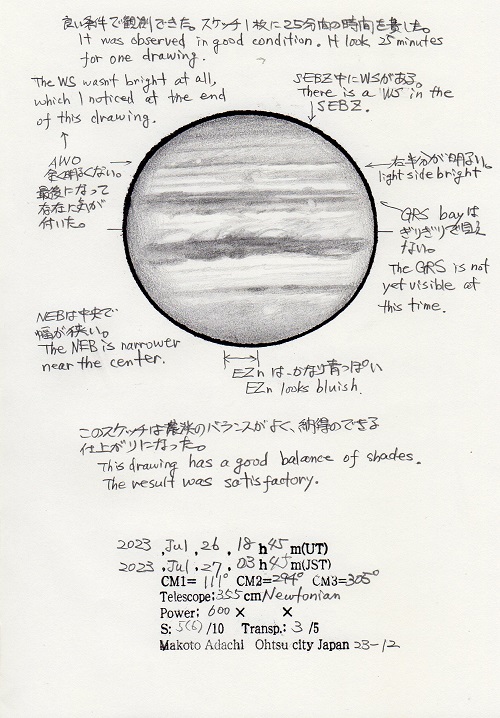 良い条件で観測できた。スケッチ1枚に25分間の時間を費した。
It was observed in good condition. It took 25 minutes
for one drawing.
The WS wasn't bright at all,
which I noticed at the end
of this drawing.
SEBZ中にWSがある。
There is a WS in the
SEBZ.
AWO
全く明るくない。
最後になって
存在に気が
付いた。
右半分が明るい。
light side bright
GRS bayは
ぎりぎりで見え
ない。
The GRS is not
yet visible at
this time.
NEBは中央で
幅が狭い。
The NEB is narrower
near the center.
EZnは、かなり青っぽい
EZn looks bluish.
このスケッチは濃淡のバランスがよく、納得のできる
仕上がりになった。
This drawing has a good balance of shades.
The result was satisfactory.
2023 ,Jul ,26 , 18 h 45 m(UT)
2023 ,Jul ,27 , 03 h 45 m(JST)
CM1= 111° CM2= 294° CM3= 305°
Telescope; 355 cm/Newtonian
Power; 600 × ×
S: 5(6) /10 Transp.: 3 /5
Makoto Adachi Ohtsu city Japan 23-12